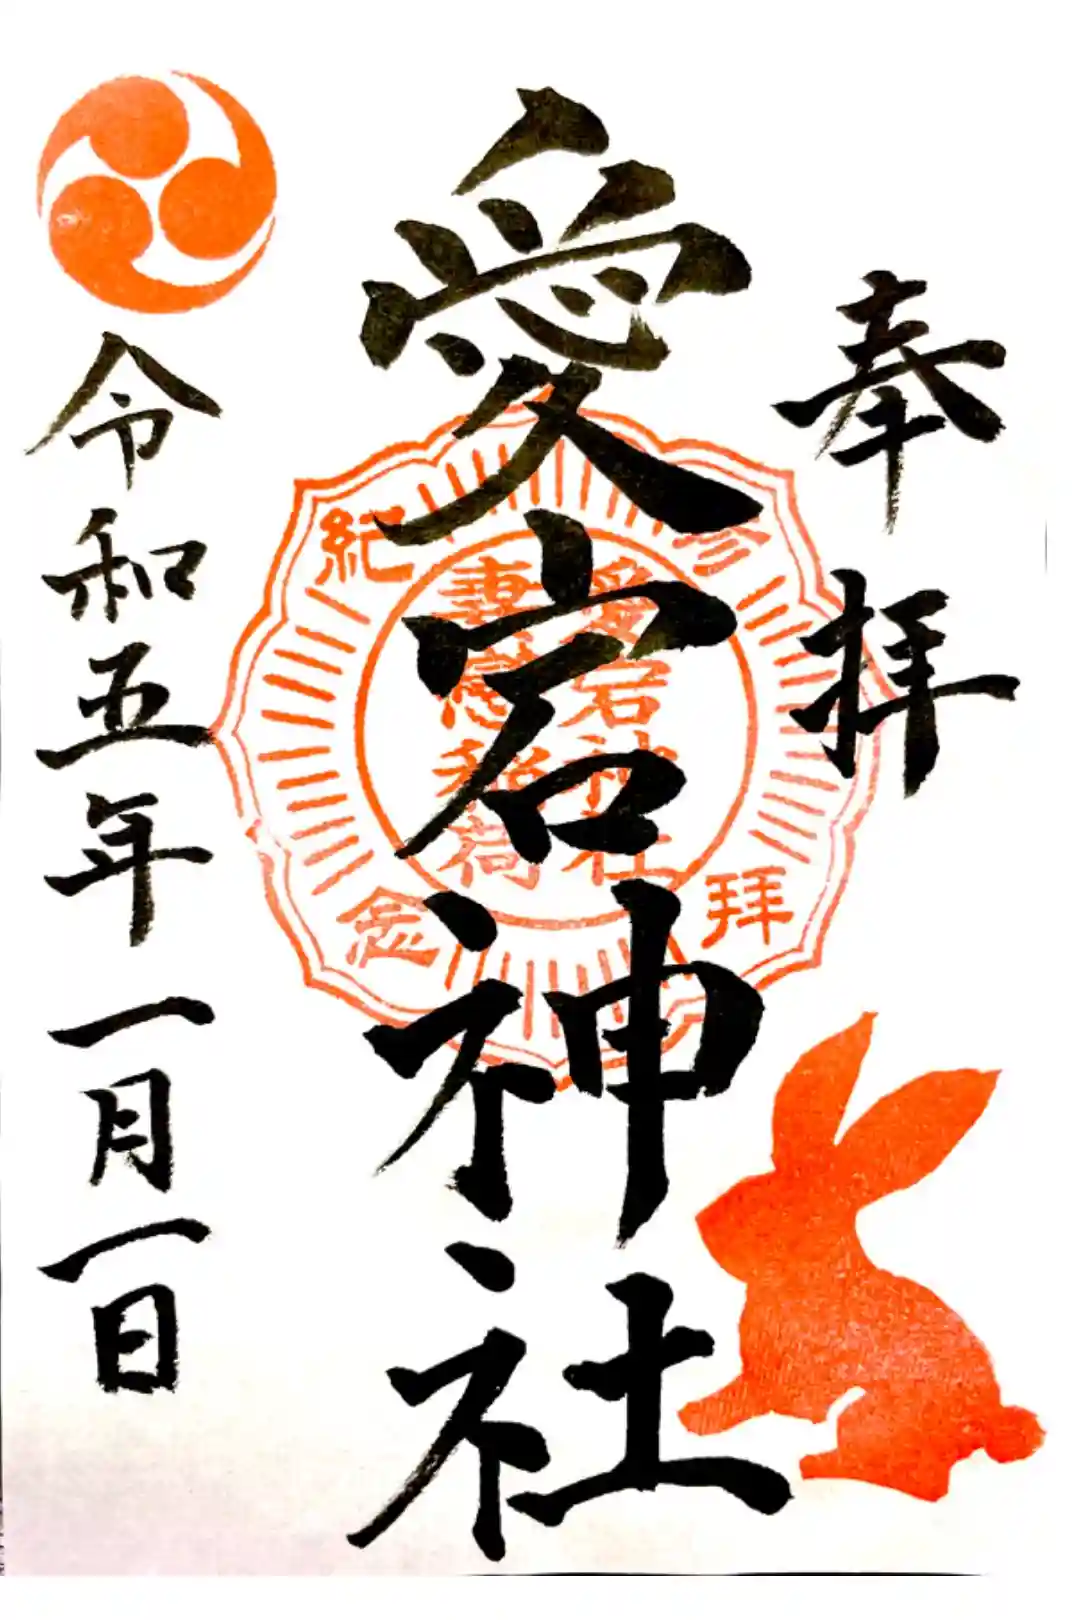 奉拝
愛宕神社
参拝
紀念
愛宕神社
妻戀稲荷
令和五年一月一日